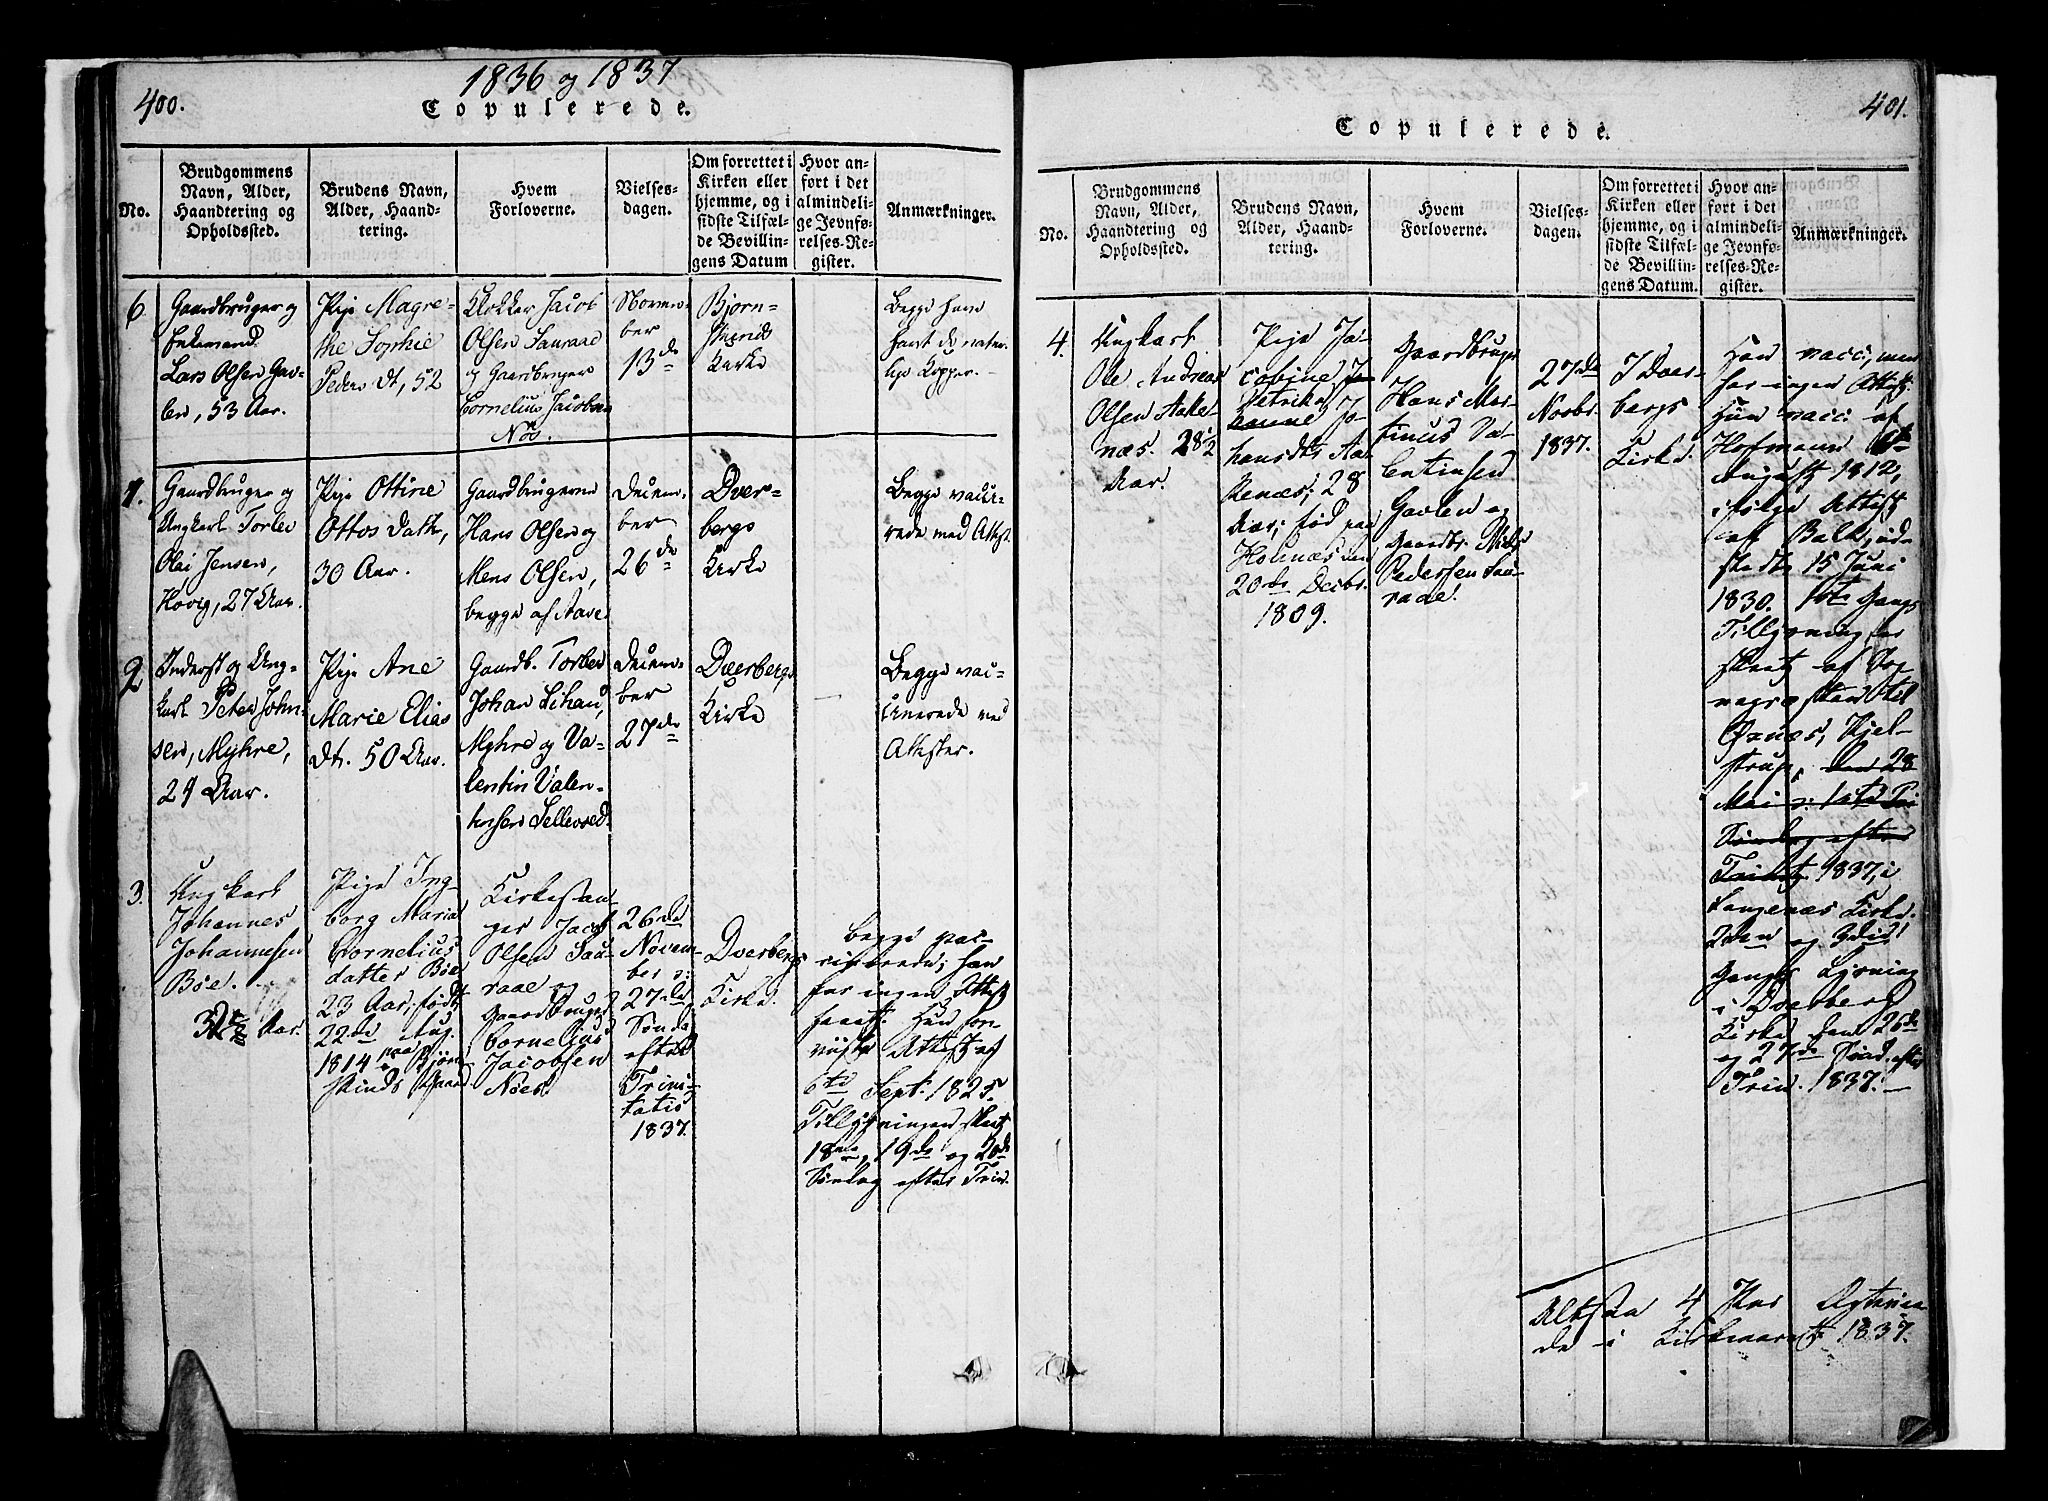 400.
1836 og 1837
Copulerede.
No.
Brudgommens
Navn, Alder,
Haandtering og
Opholdssted.
Brudens Navn,
Alder, Haand-
tering.
Hvem
Forloverne.
Vielses-
dagen.
Om forrettet i
Kirken eller
hjemme, og i
sidste Tilfæl-
de Bevillin-
gens Datum
Hvor an-
ført i det
almindeli-
ge Jevnfø-
relses-Re-
gister.
Anmærkninger.
6
Gaardbruger og
Enkemand
Lars Olsen Gav-
len, 53 Aar.
Pige Magre-
the Sophie
Peders dt, 52
Klokker Jacob
Olsen Sauraae
og Gaardbruger
Cornelius Jacobsen
Nös.
Novem-
ber
13de
Bjørn-
skinds
Kirke
Begge have
havt de natur-
lige Kopper.
1.
Gaardbruger og
Ungkarl Torber
Olai Jensen,
Hovig, 27 Aar.
Pige Ottine
Ottos Datter,
30 Aar.
Gaardbrugerne
Hans Olsen og
Mens Olsen,
begge af Aase
Decem-
ber
26de
Dver-
bergs
Kirke
Begge vacci-
rede med Attest.
2
Inderst og Ung-
karl Peter John-
sen, Myhre,
24 Aar.
Pige Ane
Marie Elias
dtr. 50 Aar.
Gaardb. Torber
Johan Schau,
Myhre og Va-
lentin Valen-
tinsen Sellevold.
Decem-
ber
27de
Dverbergs
Kirke
Begge vac-
cinerede med
Attester.
3.
Ungkarl
Johannes
Johannesen
Böe.
32 1/2 Aar.
Pige Ing-
borg Maria
Cornelius
datter Böe
23 Aar, født
22de Aug.
1814 paa Bjørn-
skinds Gaard
Kirkesan-
ger Jacob
Olsen Sau-
raae og
Gaardbruger
Cornelius
Jacobsen
Nöes.
26de
Novem-
ber :
27de
Sønd.
efter
Trini-
tatis
1837.
Dverbergs
Kirke.
begge vac-
cinerede; han
har ingen Attest
havt. Hun for-
viiste Attest af
6te Sept: 1825.
Tillysningen skeet
18de, 19de og 20de
Søndag efter Trin.
401.
Copulerede.
No.
Brudgommens
Navn, Alder,
Haandtering og
Opholdssted.
Brudens Navn,
Alder, Haand-
tering.
Hvem
Forloverne.
Vielses-
dagen.
Om forrettet i
Kirken eller
hjemme, og i
sidste Tilfæl-
de Bevillin-
gens Datum.
Hvor an-
ført i det
almindeli-
ge Jevnfø-
relses-Re-
gister.
Anmærkninger.
4.
Ungkarl
Ole Andreas
Olsen Aake-
næs. 28 1/2
Aar.
Pige Ja-
cobine
Petrika
Jo-
hansdtr Aa-
kenæs; 28
Aar; fød paa
Holmæs den
20de Decbr.
1809.
Gaardbruger
Hans Mar-
tinus Va-
lentinsen
Gavlen og
Gaardbr. Niels
Pedersen Sau-
raae.
27de
Novbr.
1837.
I Dver-
bergs
Kirke.
Han vacc:, men
har ingen Attest.
Hun vacc: af
Hofmann
August 1812,
ifølge Attest
af Balk, ud-
stedt 15 Juni
1830. 1ste Gangs
Tillysning er
skeet af Sog-
nepræsten til
Øxnæs, Hjel-
strup, den 28
Mai : 1ste
Søndag efter
Trinit 1837, i
Langenæs Kirke.
2den og 3die
Gangs Lysning
i Dverberg
Kirke den 26de
og 27de Sønd. efter
Trin. 1837.
Altsaa 4 Par Ægtevie-
de i Kirkeaaret 1837.